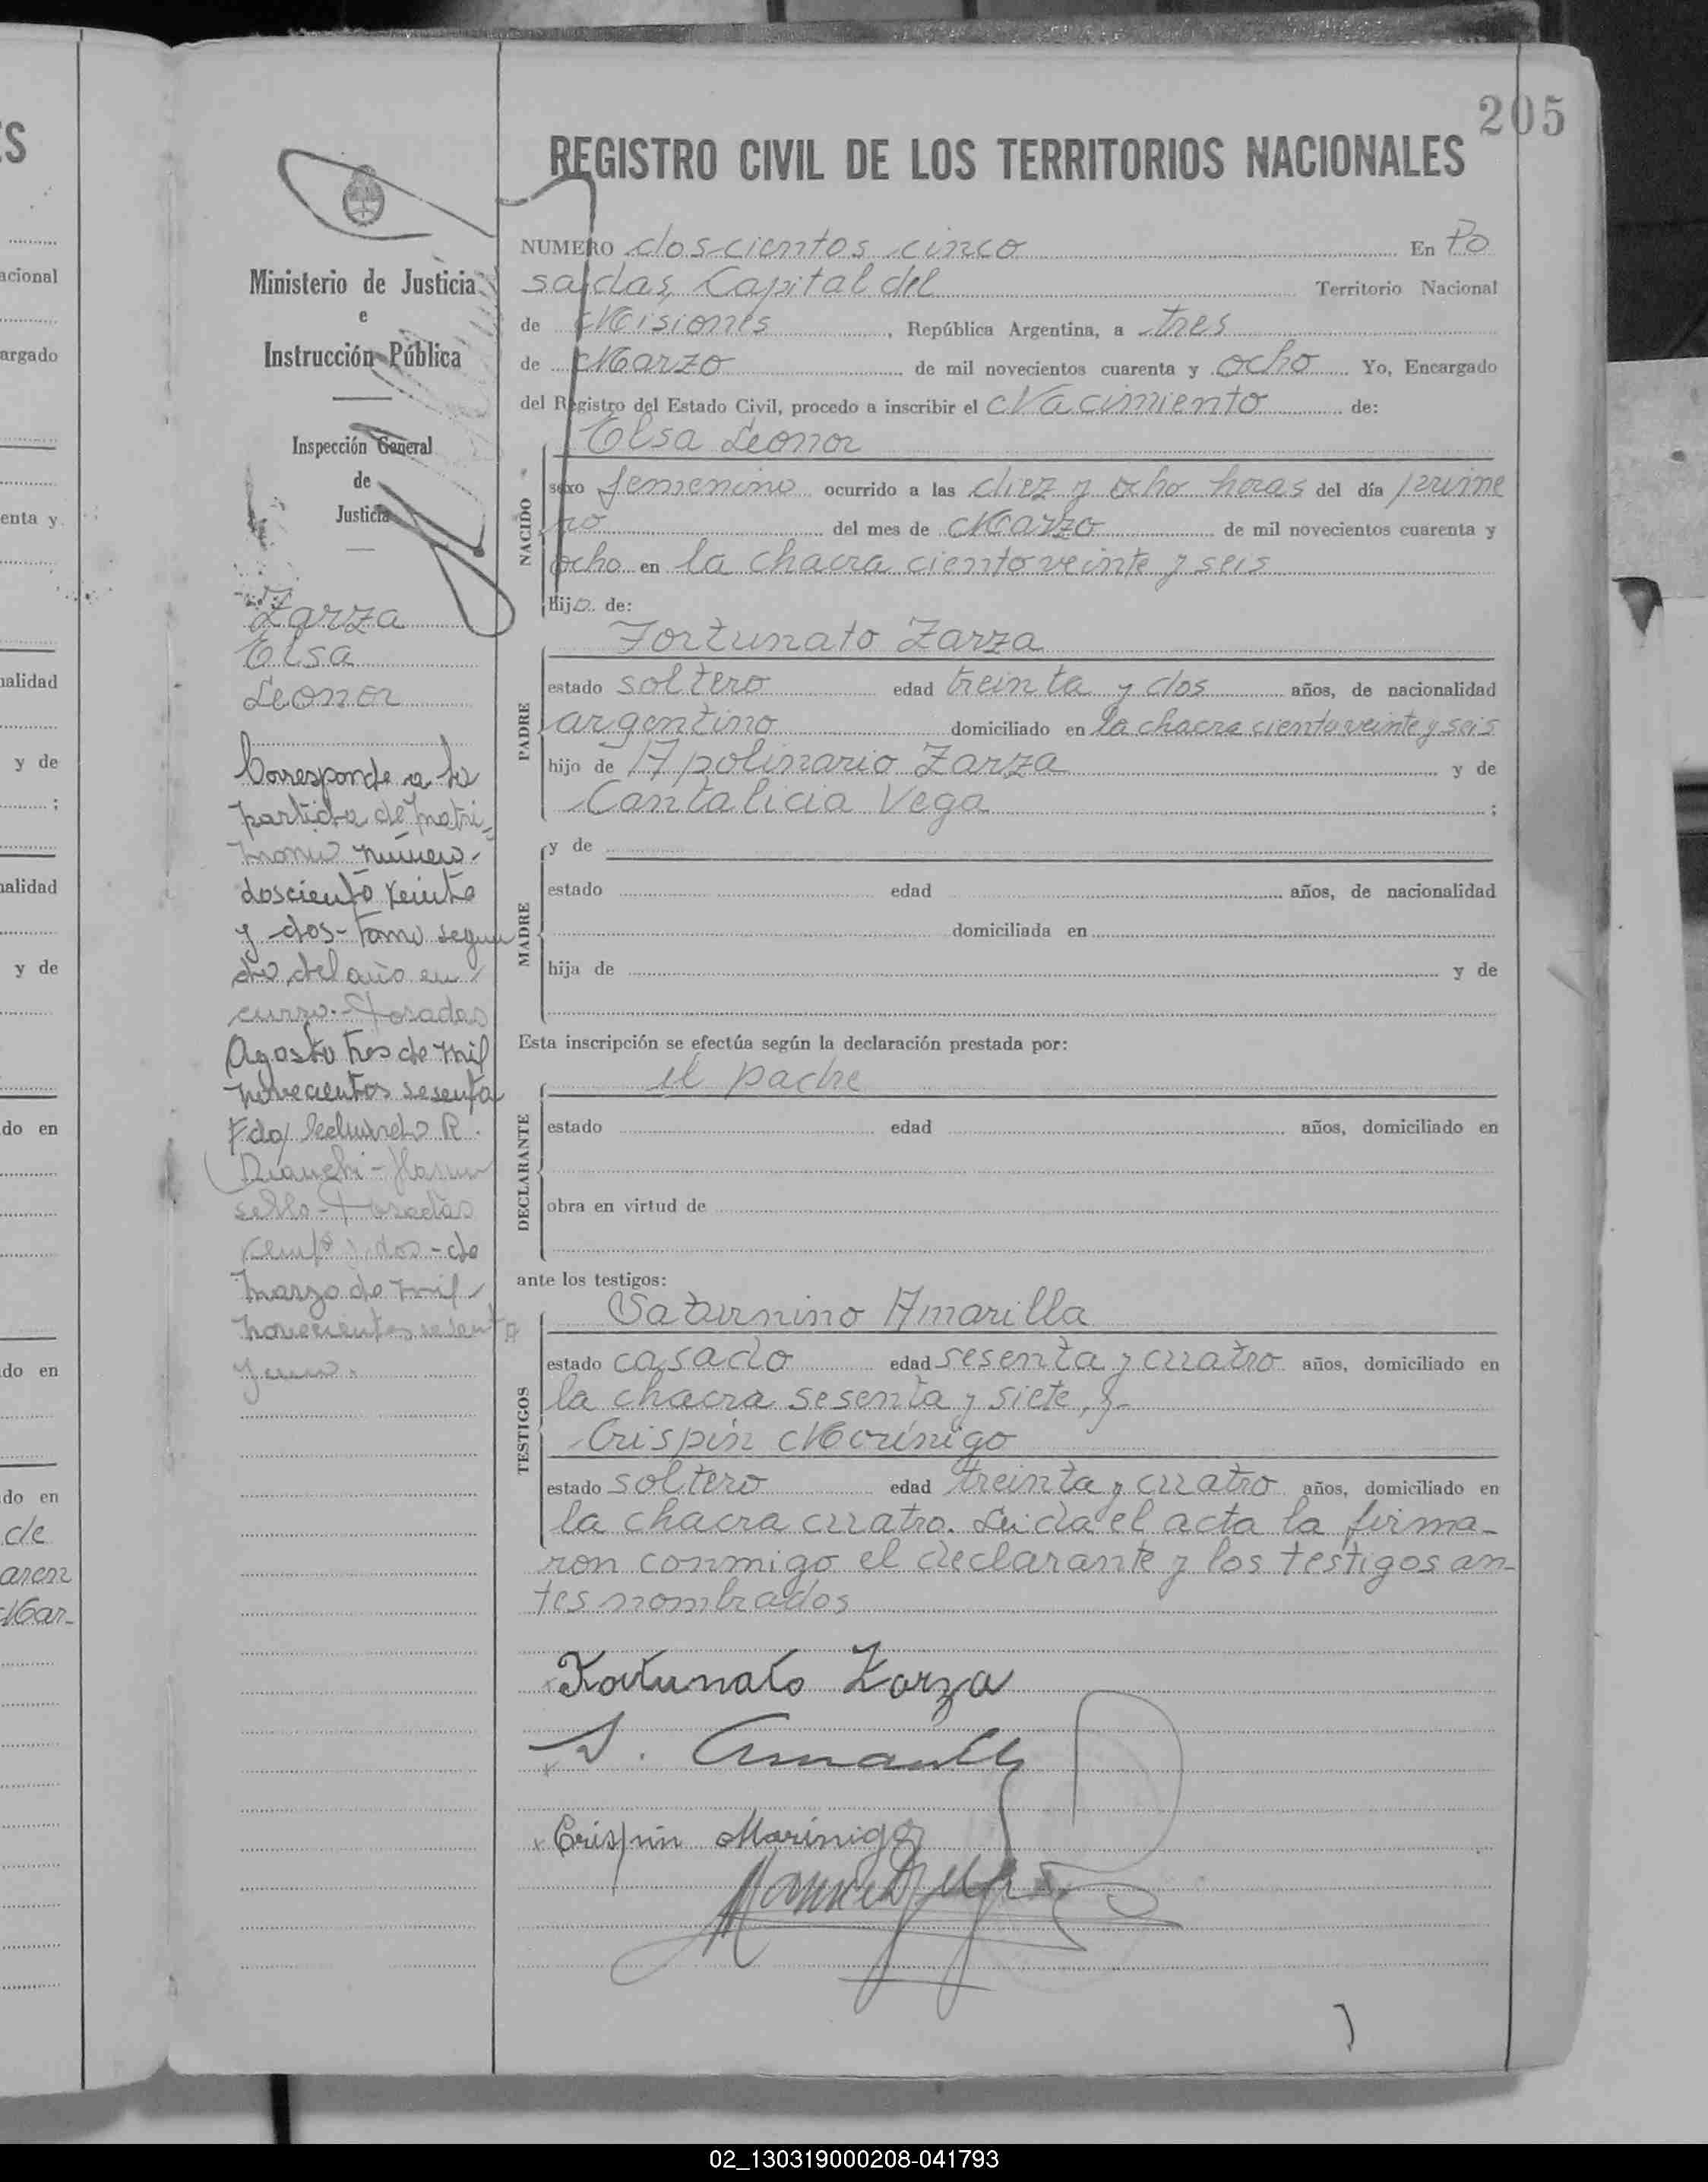 205
REGISTRO CIVIL DE LOS TERRITORIOS NACIONALES
Ministerio de Justicia
e
Instrucción Pública
Inspección General
de
Justicia
Zarza
Elsa
Leonor
Corresponde a la
partida de matri-
monio número
doscientos veinte
y dos - tomo segun
do, del año en
curso. - Posadas
Agosto tres de mil
novecientos sesenta
Fdo/ R.
Bianchi -
sello - Posadas
y dos - de
marzo de mil
novecientos sesenta
y
NUMERO doscientos cinco En Po
sadas, Capital del Territorio Nacional
de Misiones, República Argentina, a tres
de Marzo de mil novecientos cuarenta y ocho Yo, Encargado
del Registro del Estado Civil, procedo a inscribir el Nacimiento de:
NACIDO
Elsa Leonor
sexo femenino ocurrido a las diez y ocho horas del día prime
ro del mes de Marzo de mil novecientos cuarenta y
ocho en la chacra ciento veinte y seis
Hija de:
PADRE
Fortunato Zarza
estado soltero edad treinta y dos años, de nacionalidad
argentino domiciliado en la chacra ciento veinte y seis
hijo de Apolinario Zarza y de
Cantalicia Vega ;
MADRE
y de
estado edad años, de nacionalidad
domiciliada en
hija de y de
Esta inscripción se efectúa según la declaración prestada por:
DECLARANTE
el padre
estado edad años, domiciliado en
obra en virtud de
ante los testigos:
TESTIGOS
Saturnino Amarilla
estado casado edad sesenta y cuatro años, domiciliado en
la chacra sesenta y siete, y-
Crispín Morínigo
estado soltero edad treinta y cuatro años, domiciliado en
la chacra cuatro. Leida el acta la firma-
ron conmigo el declarante y los testigos an-
tes nombrados
Fortunato Zarza
S. Amarilla
Crispin Morinigo
02_130319000208-041793